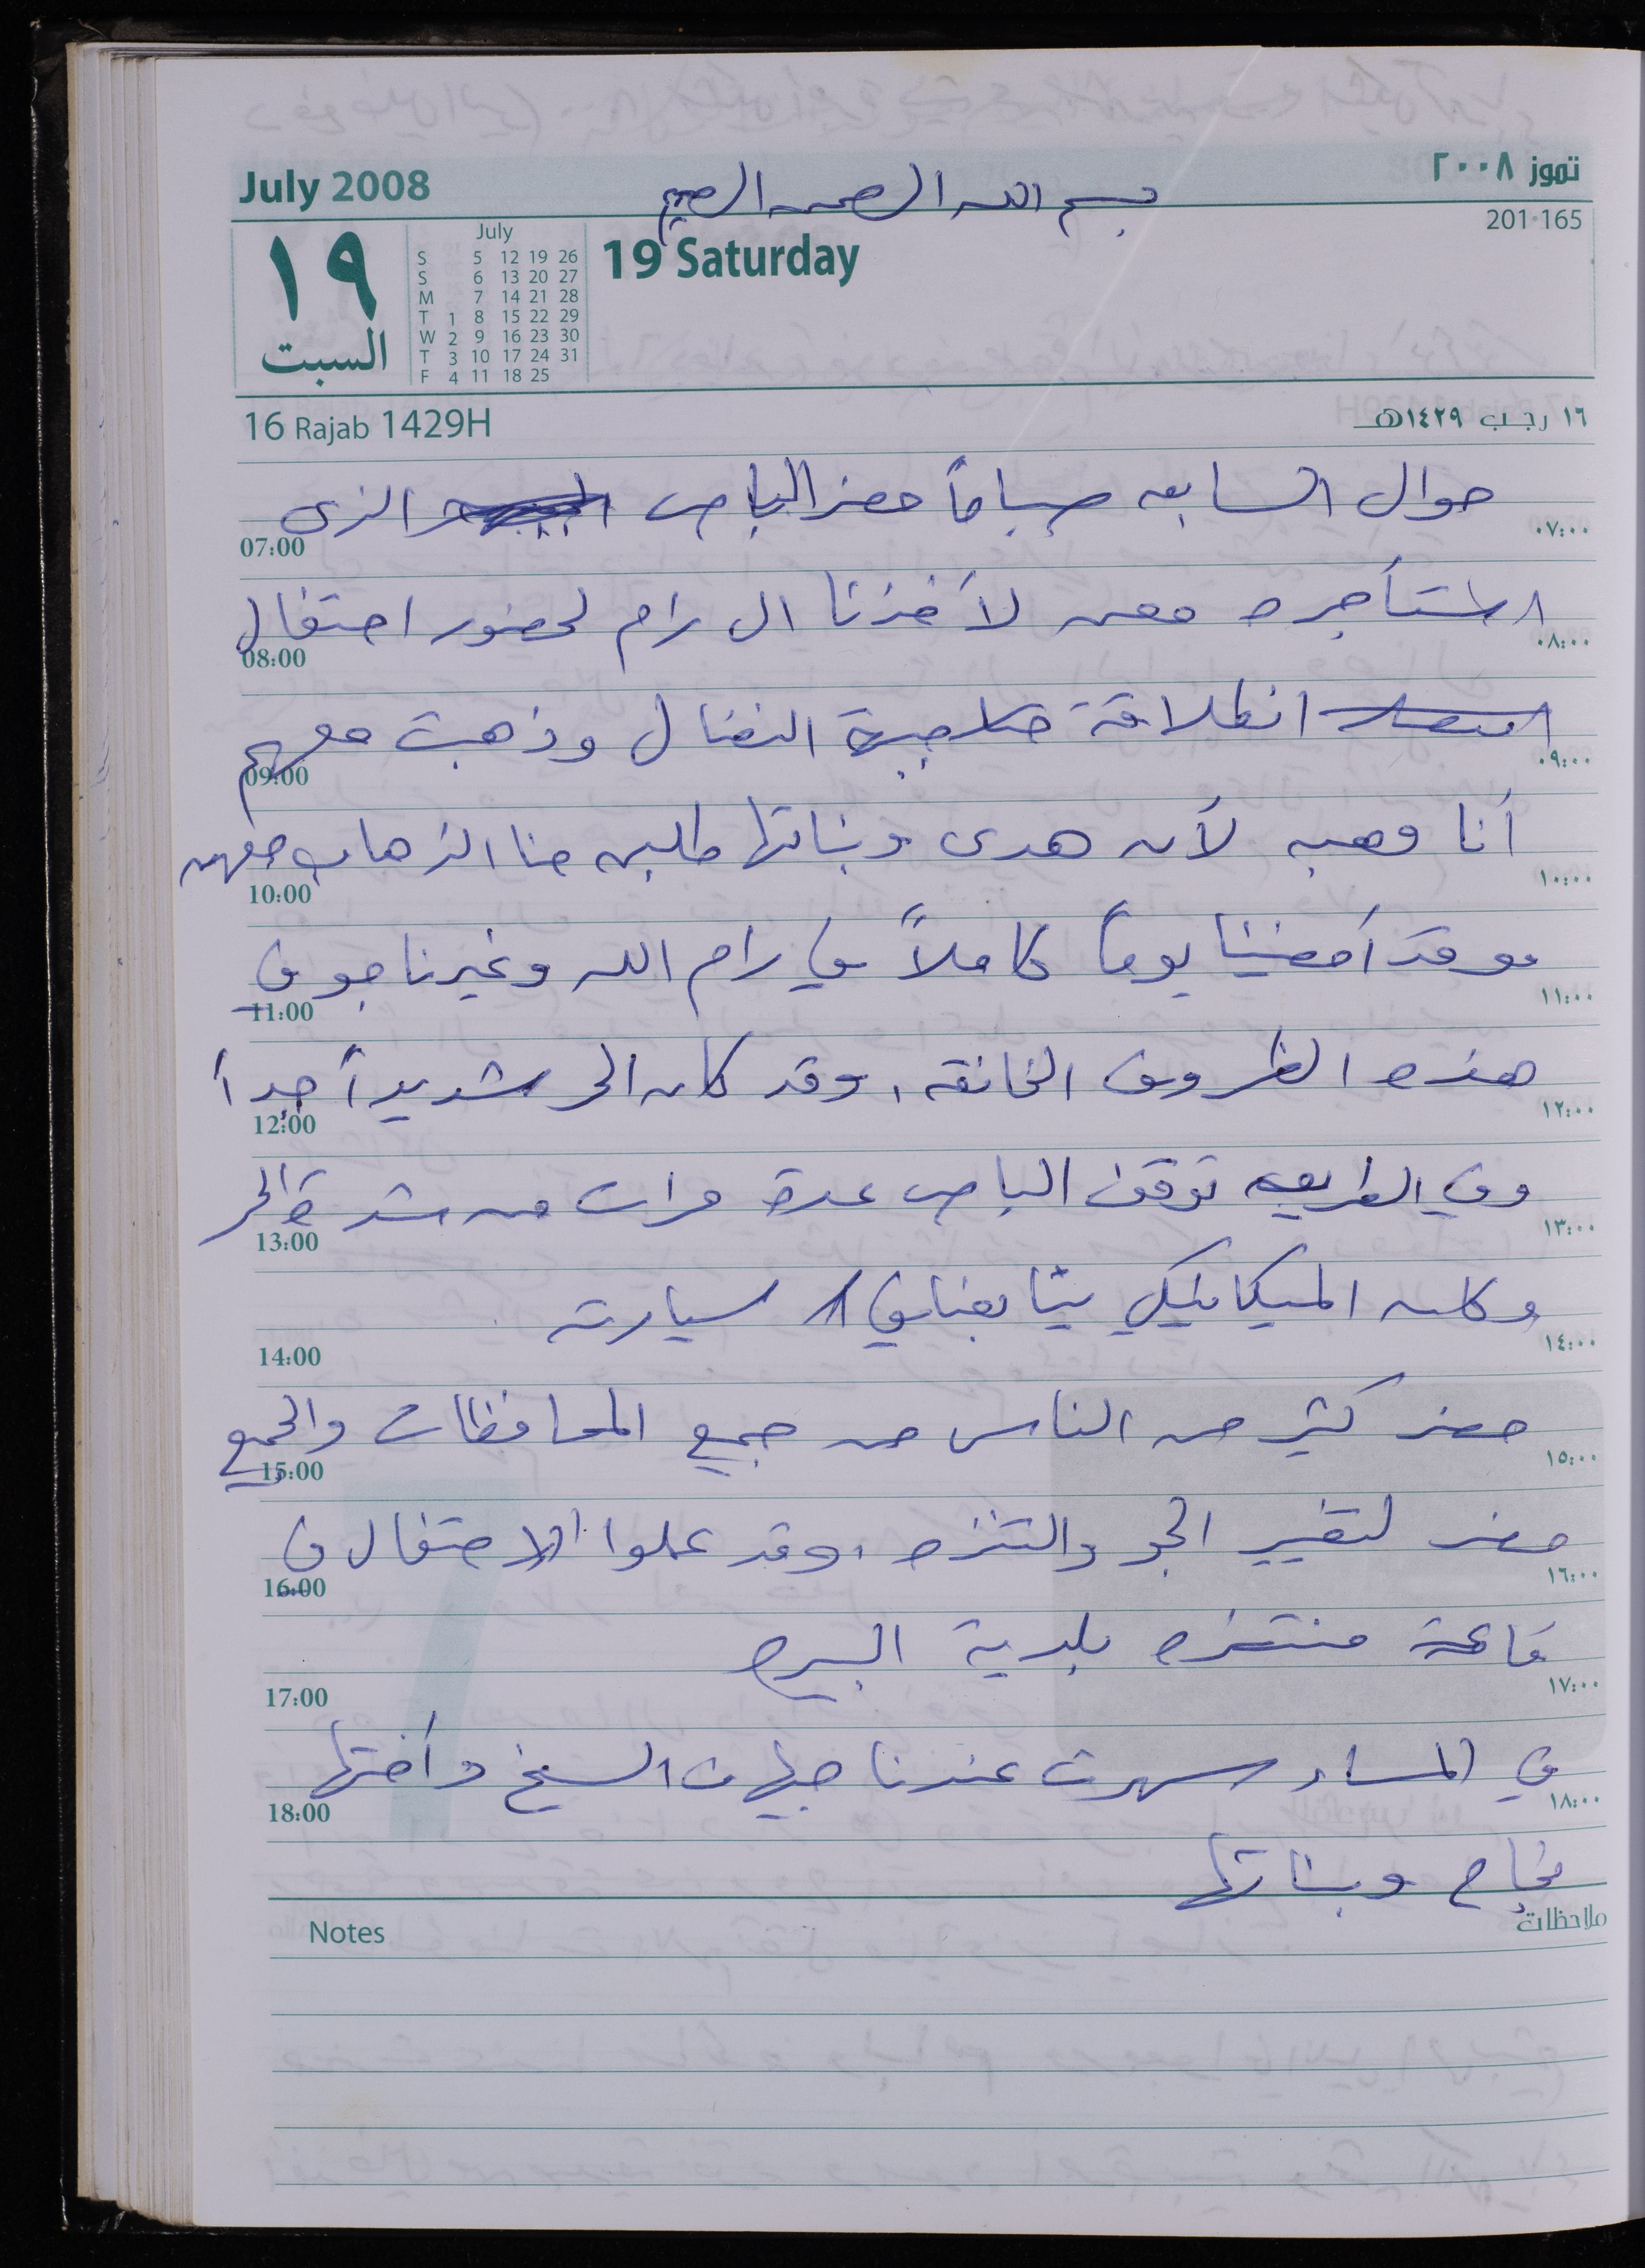 July 2008
بسم الله الرحمن الرحيم
تموز ٢٠٠٨
201-165
١٩
السبت
July
S 5 12 19 26
S 6 13 20 27
M 7 14 21 28
T 1 8 15 22 29
W 2 9 16 23 30
T 3 10 17 24 31
F 4 11 18 25
19 Saturday
16 Rajab 1429H
١٦ رجب ١٤٢٩هـ
حوال السابعه صباحاً حضر الباص الذي
07:00 ٠٧:٠٠
استأجره معن لأخذنا ال رام لحضور احتفال
08:00 ٠٨:٠٠
انطلاقة جبهة النضال وذهبت معهم
09:00 ٠٩:٠٠
أنا وهبه لأن هدى وبناتها طلبن منا الذهاب معهن
10:00 ١٠:٠٠
وقد أمضينا يوماً كاملاً في رام الله وغيرنا جو في
11:00 ١١:٠٠
هذه الظروف الخانقه، وقد كان الحر شديداً جداً
12:00 ١٢:٠٠
وفي الطريق توقف الباص عدة مرات من شدة الحر
13:00 ١٣:٠٠
وكان الميكانيكي سيارته
14:00 ١٤:٠٠
حضر كثير من الناس من جميع المحافظات والجميع
15:00 ١٥:٠٠
حضر لتغيير الجو والتنزه، وقد عملوا الاحتفال في
16:00 ١٦:٠٠
قاعة منتزه بلدية البيره
17:00 ١٧:٠٠
في المساء سهرت عندنا جيهان الشيخ وأختها
18:00 ١٨:٠٠
نجاح وبناتها
Notes
ملاحظات